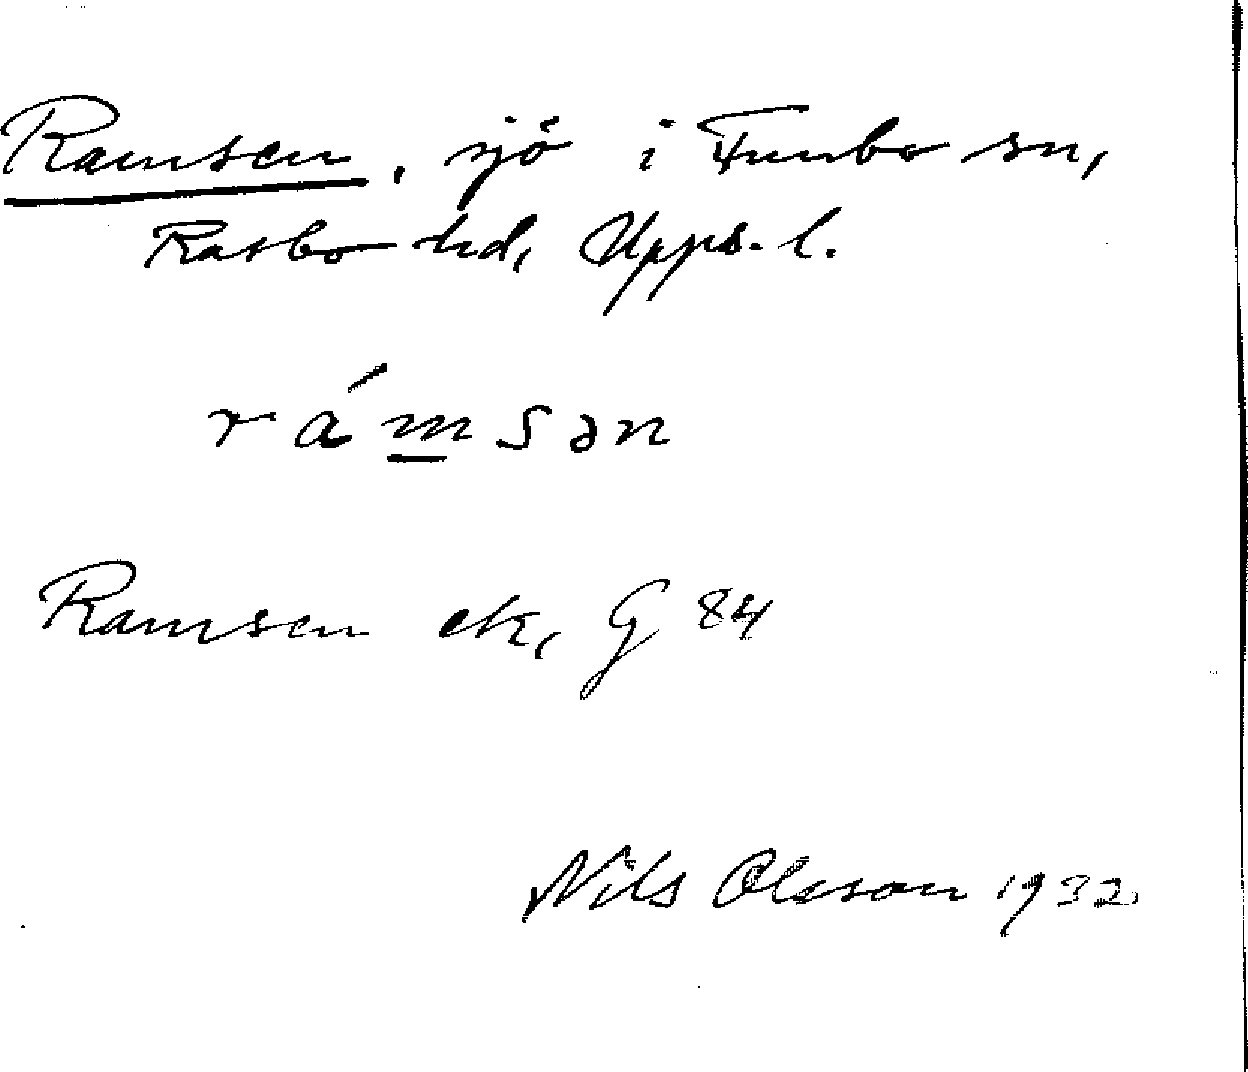 Ramsen, sjö i Funbo sn,
Rasbo hd, Upps. l.
rámsən
Ramsen ek, G 84
Nils Olsson 1932